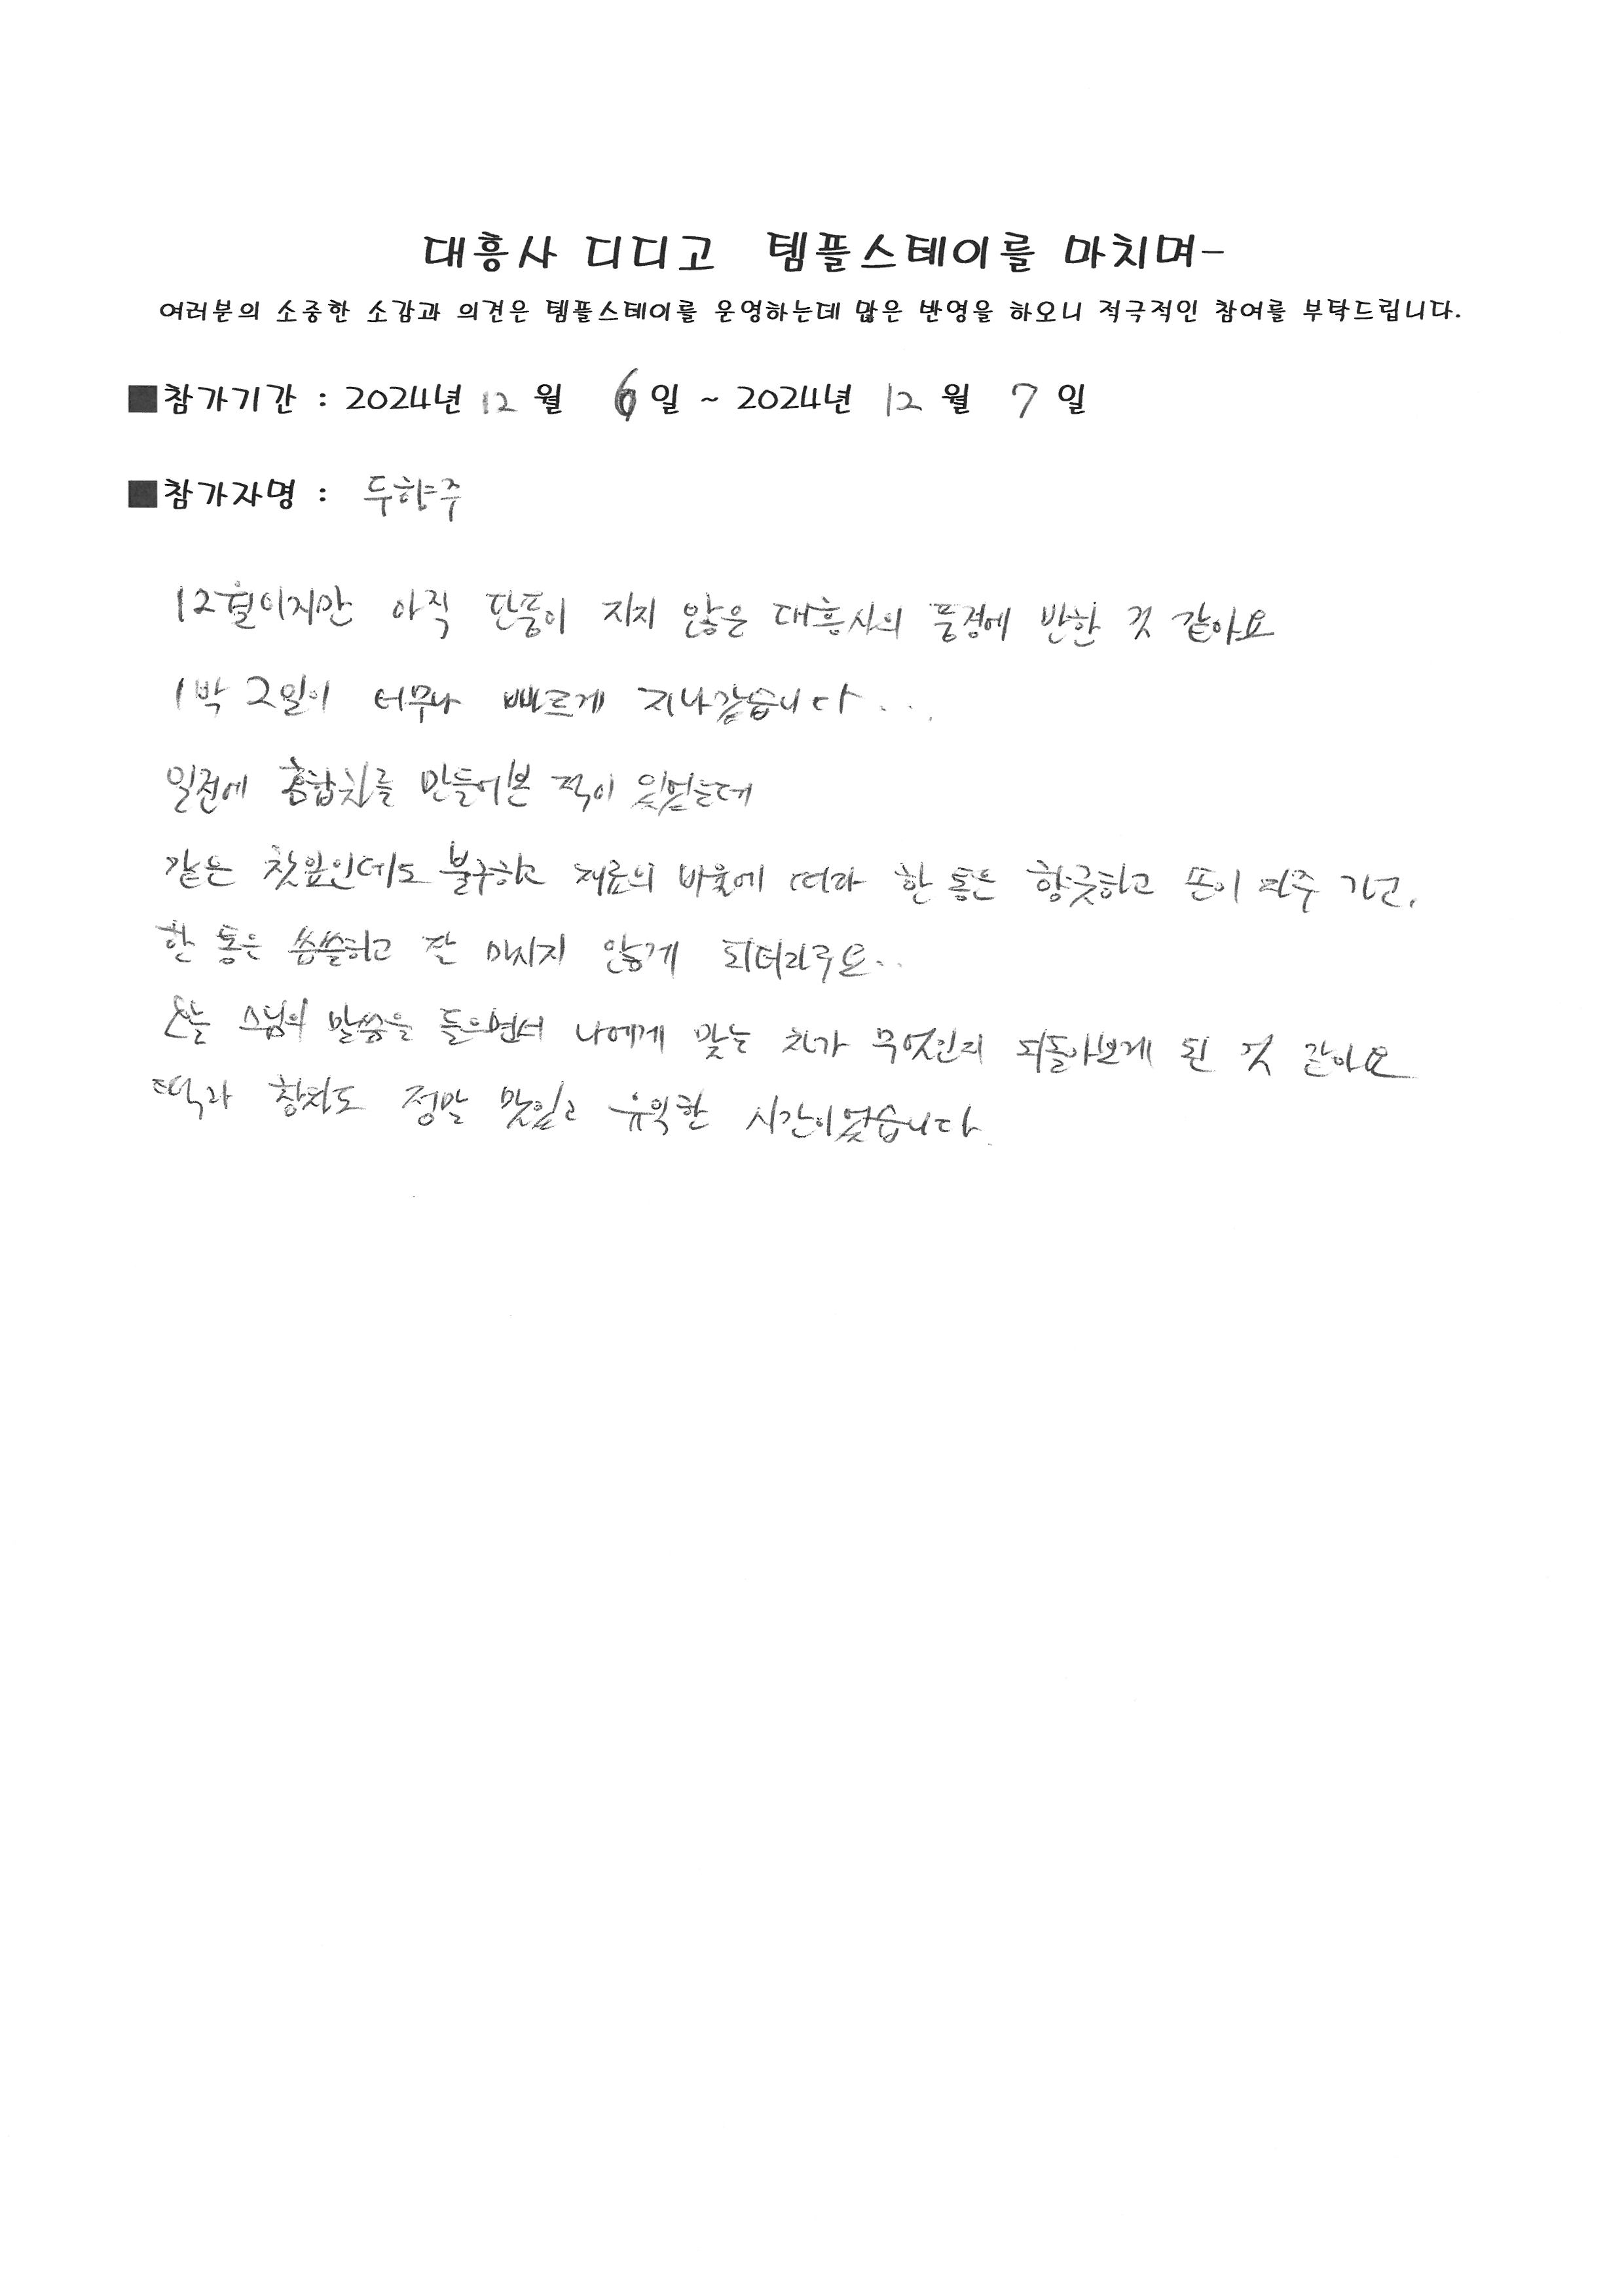 대흥사 디디고 템플스테이를 마치며-
여러분의 소중한 소감과 의견은 템플스테이를 운영하는데 많은 반영을 하오니 적극적인 참여를 부탁드립니다.
■참가기간 : 2024년 12월 6일 ~ 2024년 12월 7일
■참가자명 : 두향주
12월이지만 아직 단풍이 지지 않은 대흥사의 풍경에 반한 것 같아요
1박 2일이 너무나 빠르게 지나갔습니다...
일전에 혼합차를 만들어본 적이 있었는데
같은 찻잎인데도 불구하고 재료의 비율에 따라 한 통은 향긋하고 손이 자주 가고,
한 통은 씁쓸하고 잘 마시지 않게 되더라구요..
오늘 스님의 말씀을 들으면서 나에게 맞는 차가 무엇인지 되돌아보게 된 것 같아요
떡과 창차도 정말 맛있고 유익한 시간이었습니다.